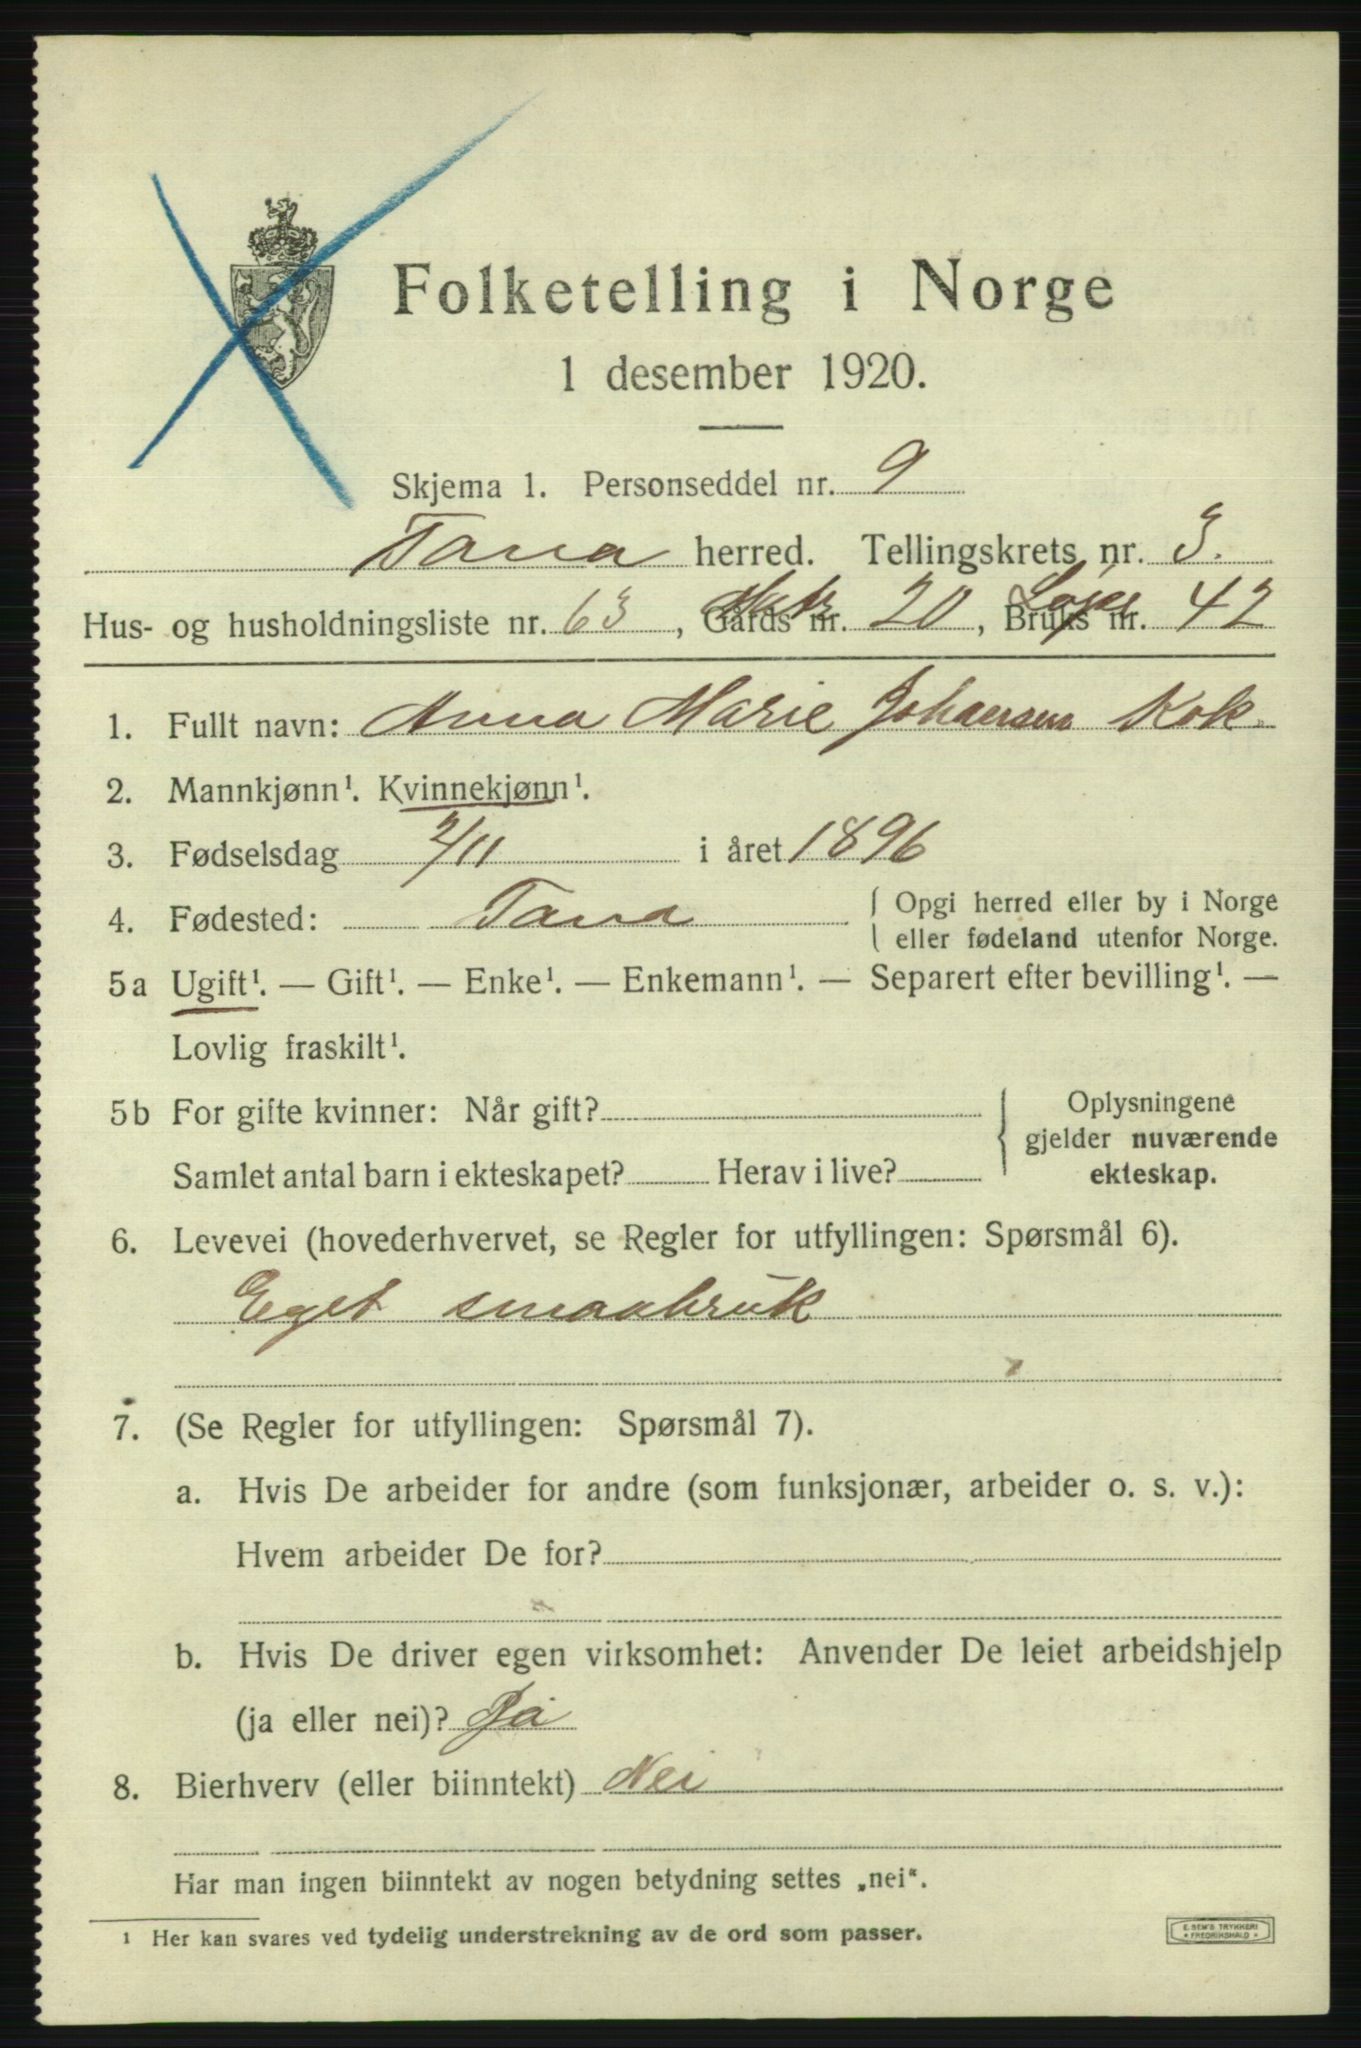 Folketelling i Norge
1 desember 1920.
Skjema 1. Personseddel nr. 9
Tana herred. Tellingskrets nr. 3.
Hus- og husholdningsliste nr. 63, Gårds nr. 20, Bruks nr. 42
1. Fullt navn: Anna Marie Johansen Kok
2. Mannkjønn¹. Kvinnekjønn¹.
3. Fødselsdag 2/11 i året 1896
4. Fødested: Tana { Opgi herred eller by i Norge
eller fødeland utenfor Norge.
5a Ugift¹. — Gift¹. — Enke¹. — Enkemann¹. — Separert efter bevilling¹. —
Lovlig fraskilt¹.
5b For gifte kvinner: Når gift? { Oplysningene
gjelder nuværende
Samlet antal barn i ekteskapet? Herav i live? ekteskap.
6. Levevei (hovederhvervet, se Regler for utfyllingen: Spørsmål 6).
Eget smaabruk
7. (Se Regler for utfyllingen: Spørsmål 7).
a. Hvis De arbeider for andre (som funksjonær, arbeider o. s. v.):
Hvem arbeider De for?
b. Hvis De driver egen virksomhet: Anvender De leiet arbeidshjelp
(ja eller nei)? Ja
8. Bierhverv (eller biinntekt) Nei
Har man ingen biinntekt av nogen betydning settes „nei“.
¹ Her kan svares ved tydelig understrekning av de ord som passer.
E. SEM'S TRYKKERI
* FREDRIKSHALD *